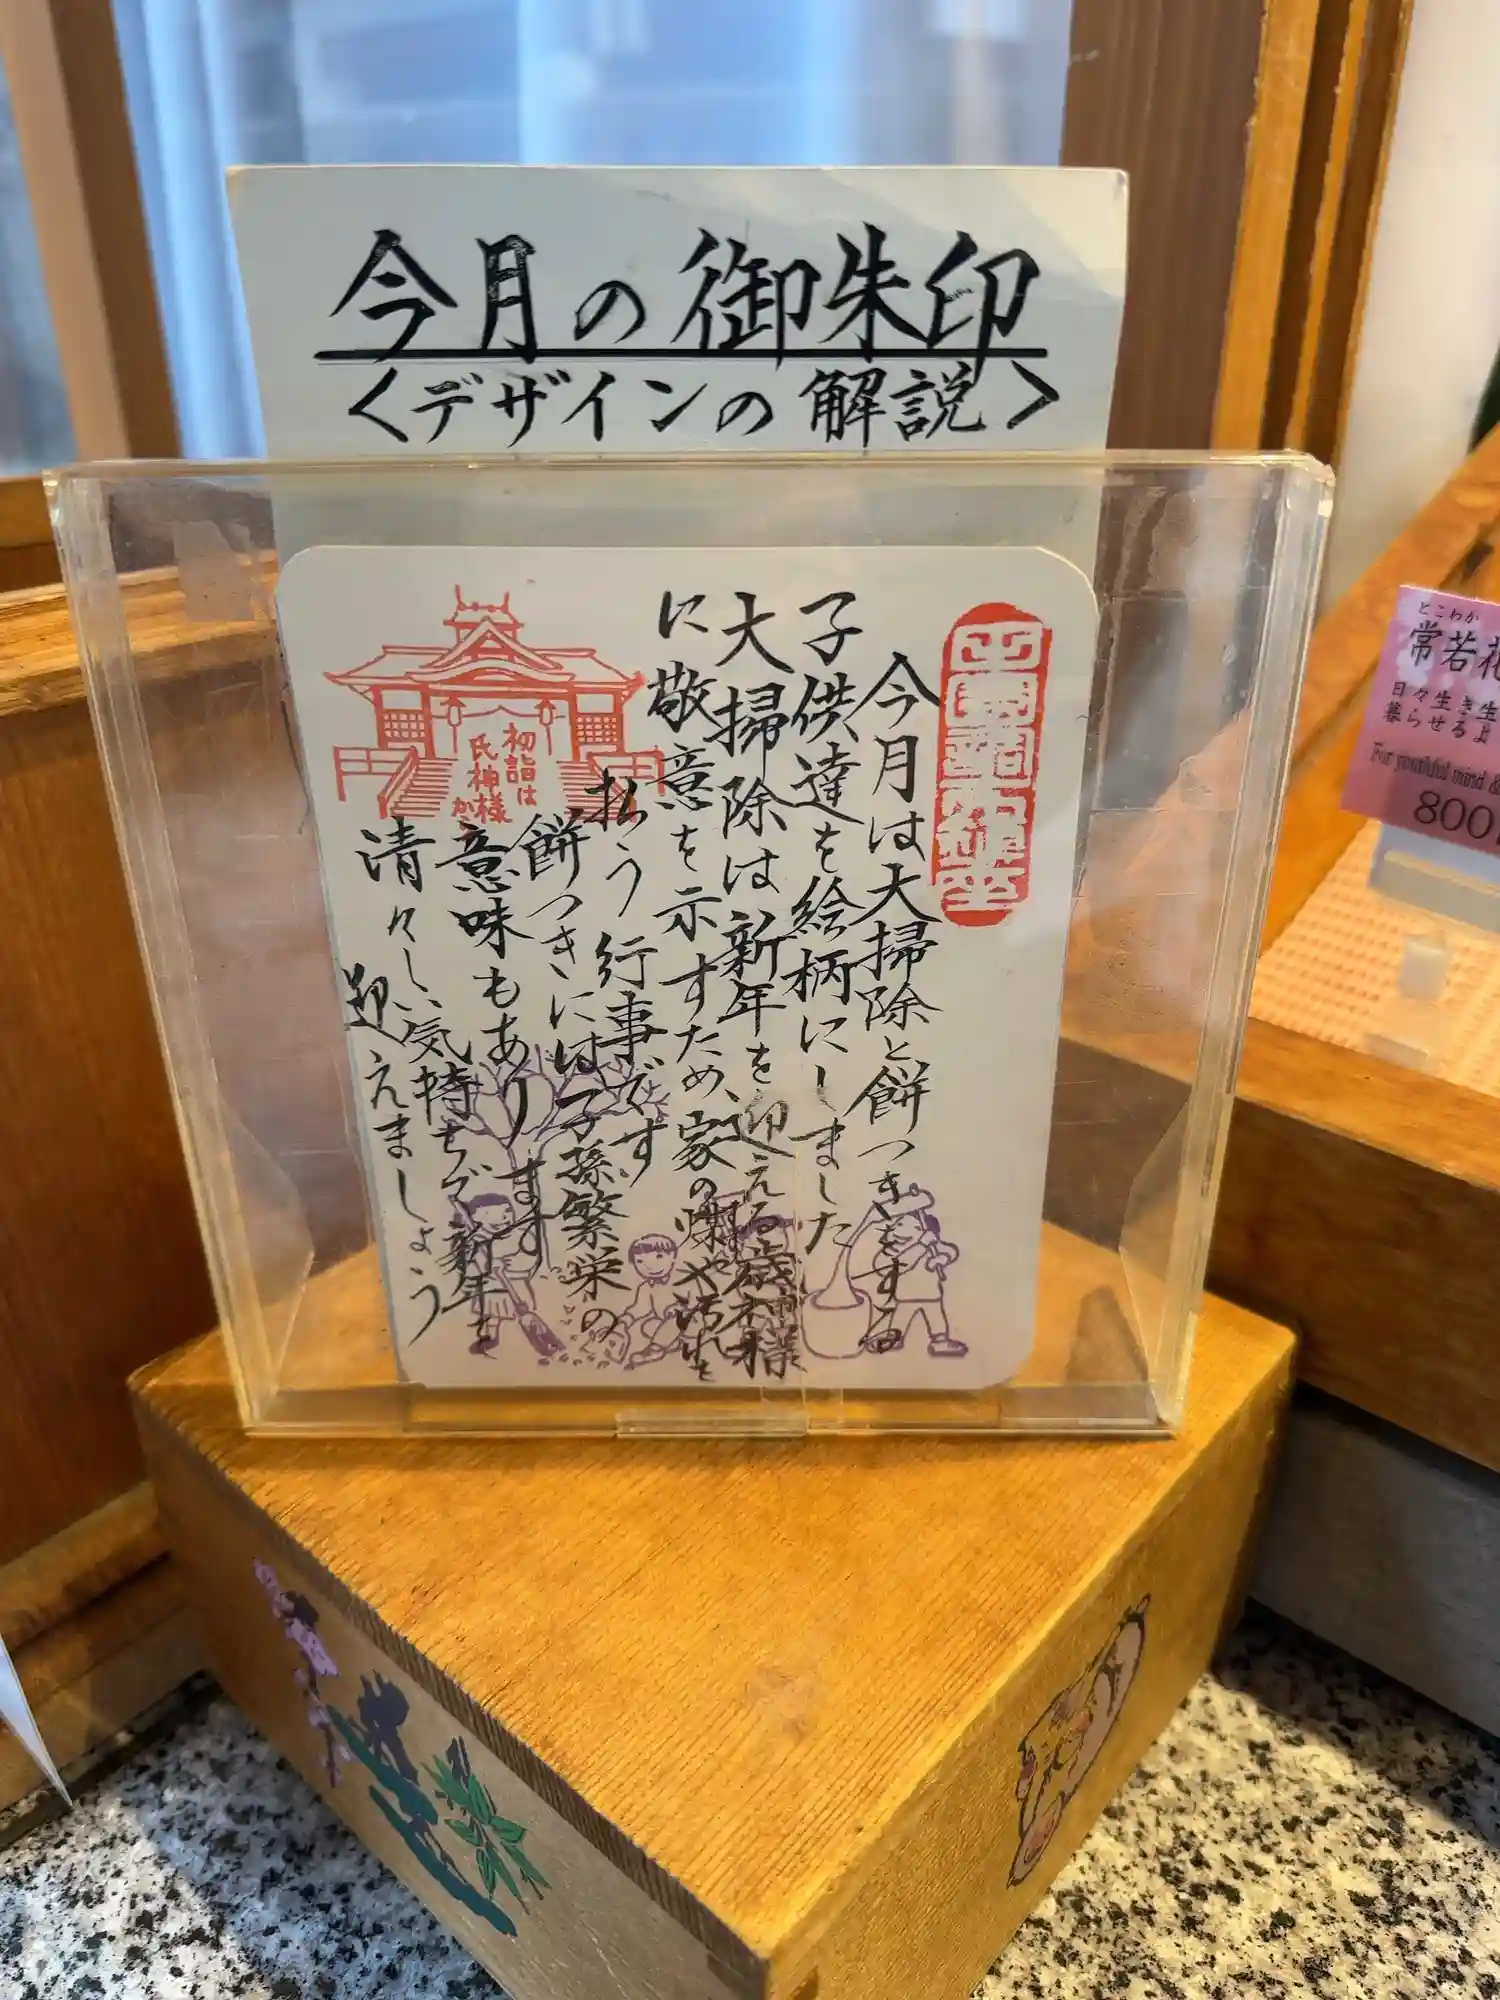 今月の御朱印
<デザインの解説>
今月は大掃除と餅つきをする
子供達を絵柄にしました
大掃除は新年を迎える歳神様
に敬意を示すため、家の煤や汚れを
払う行事です
餅つきには子孫繁栄の
意味もあります
清々しい気持ちで新年を
迎えましょう
初詣は
氏神様
から
とこわか
常若花
日々生き生
暮らせるよ
For youthful mind &
800